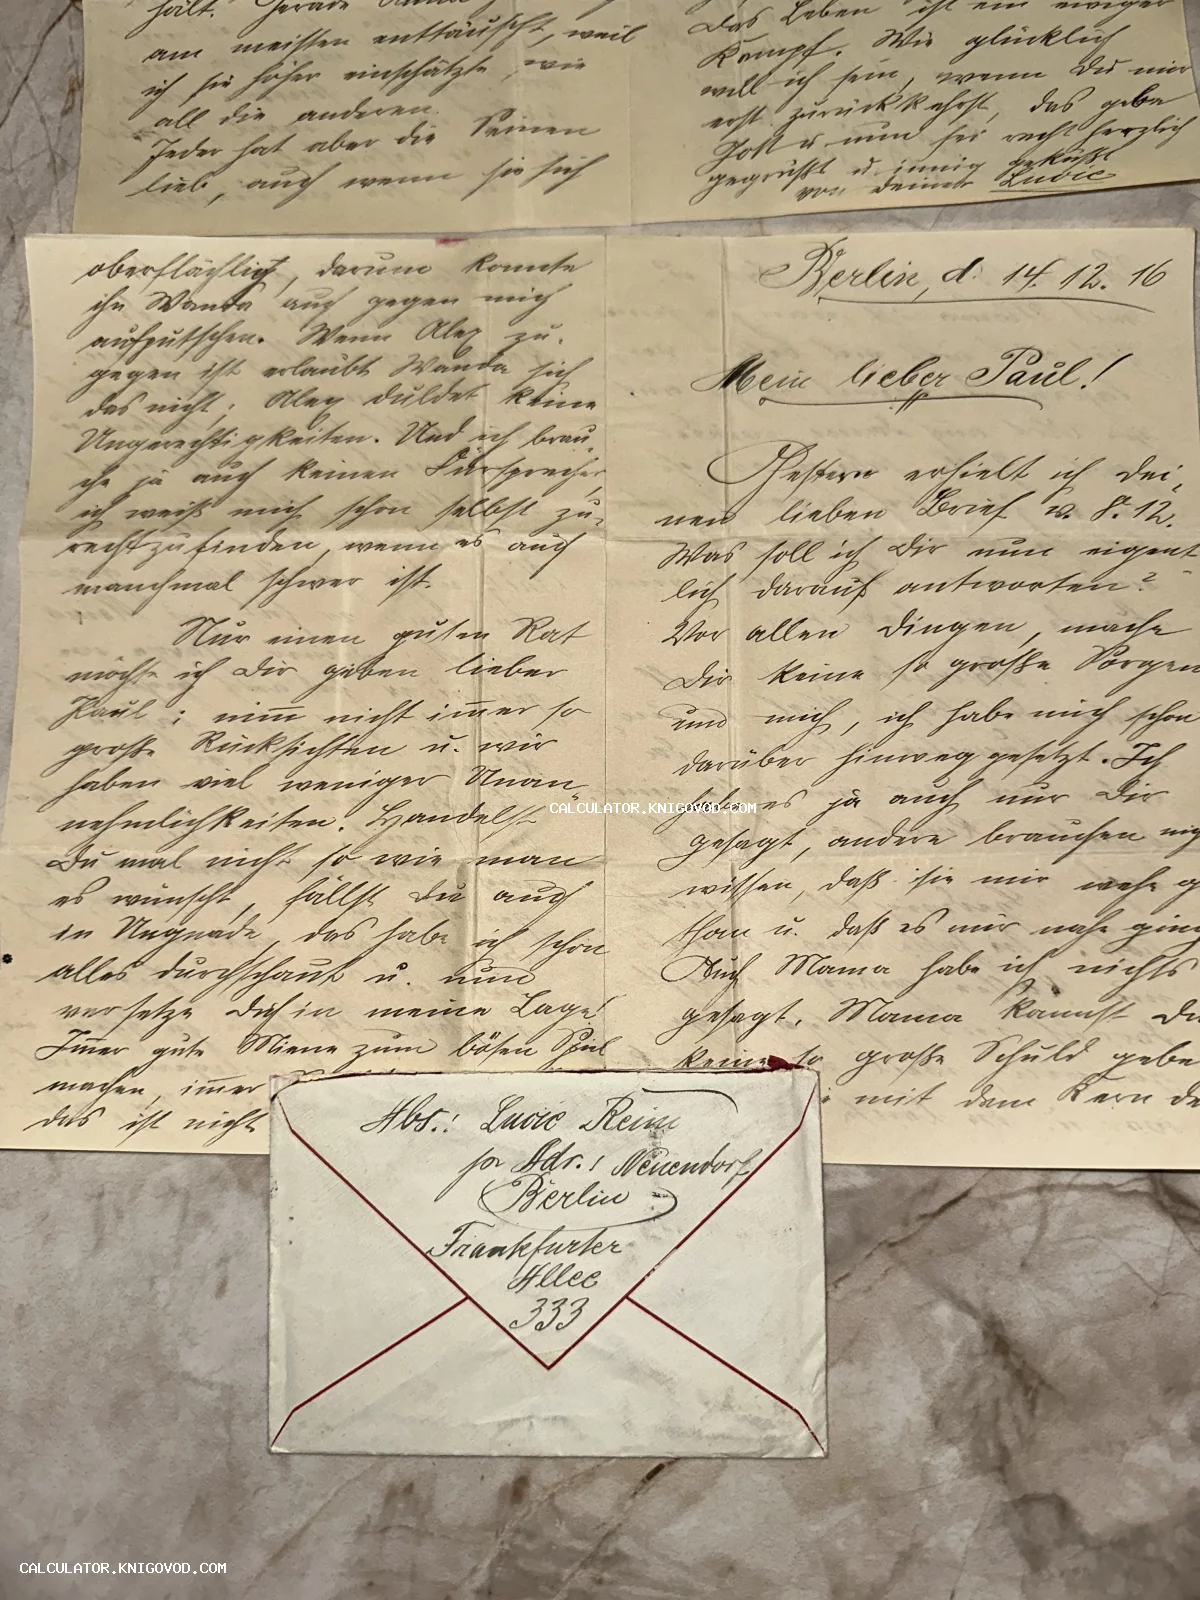 hält. Gerade
am meisten enttäuscht, weil
ich sie höher einschätzte, wie
all die anderen.
Jeder hat aber die Seinen
lieb, auch wenn sie sich
Das Leben ist ein ewiger
Kampf. Wie glücklich
will ich sein, wenn Du mir
erst zurückkehrst, das gebe
Gott u nun sei recht herzlich
gegrüßt u. innig geküßt
von Deiner Lucie
oberflächlich, darum konnte
ihn Wanda auch gegen mich
aufputschen. Wenn Alex zu-
gegen ist erlaubt Wanda sich
das nicht; Alex duldet keine
Ungerechtigkeiten. Und ich brau-
che ja auch keinen Fürsprecher,
ich weiß mich schon selbst zu-
rechtzufinden, wenn es auch
manchmal schwer ist.
Nur einen guten Rat
möchte ich Dir geben lieber
Paul; nimm nicht immer so
große Rücksichten u. wir
haben viel weniger Unan-
nehmlichkeiten. Handelst
Du mal nicht so wie man
es wünscht, fällst Du auch
in Ungnade, das habe ich schon
alles durchschaut u. nun
versetze Dich in meine Lage!
Immer gute Miene zum bösen Spiel
machen, immer
das ist nicht
Berlin, d. 14. 12. 16
Mein lieber Paul!
Gestern erhielt ich Dei-
nen lieben Brief v. 8. 12.
Was soll ich Dir nun eigent-
lich darauf antworten?
Vor allen Dingen, mache
Dir keine so große Sorgen
um mich, ich habe mich schon
darüber hinweggesetzt. Ich
habe es ja auch nur Dir
gesagt, andere brauchen nich
wissen, daß sie mir wehe g
than u. daß es mir nahe ging
Auch Mama habe ich nichts
gesagt. Mama kannst Du
keine so große Schuld gebe
mit dem Kern de
Abs.: Lucie Reim
pr Adr.: Neuendorf
Berlin
Frankfurter
Allee
333
CALCULATOR.KNIGOVOD.COM
CALCULATOR.KNIGOVOD.COM